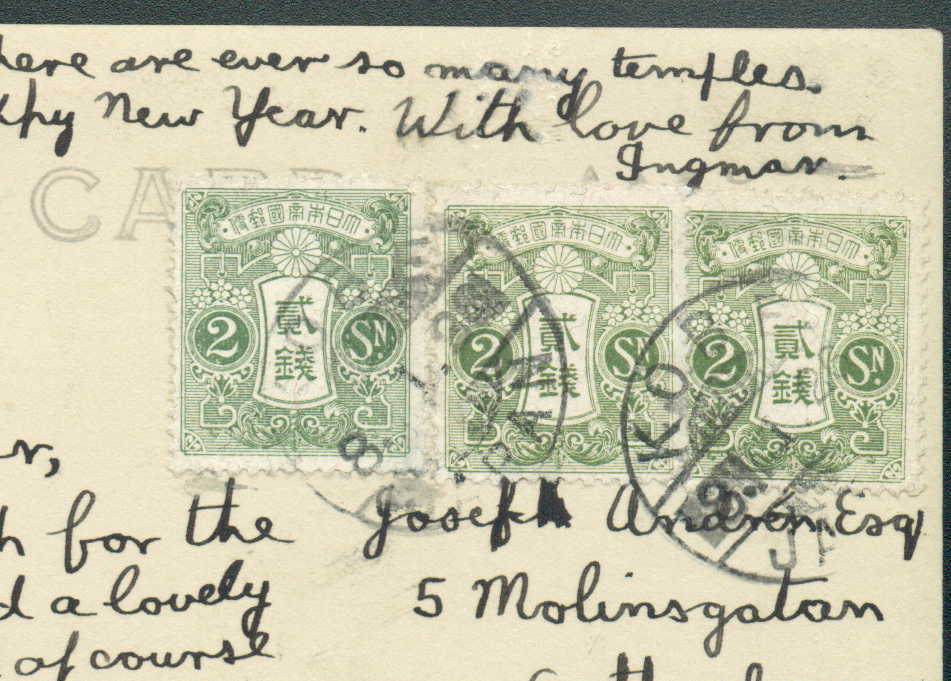 here are ever so many temples.
ppy New Year. With love from
Ingmar.
CARD
便郵國帝本日大
便郵國帝本日大
便郵國帝本日大
貳錢
貳錢
貳錢
2 SN.
2 SN.
2 SN.
KOBE
JAPAN
r,
h for the
d a lovely
of course
Joseph Andrén Esq
5 Molinsgatan